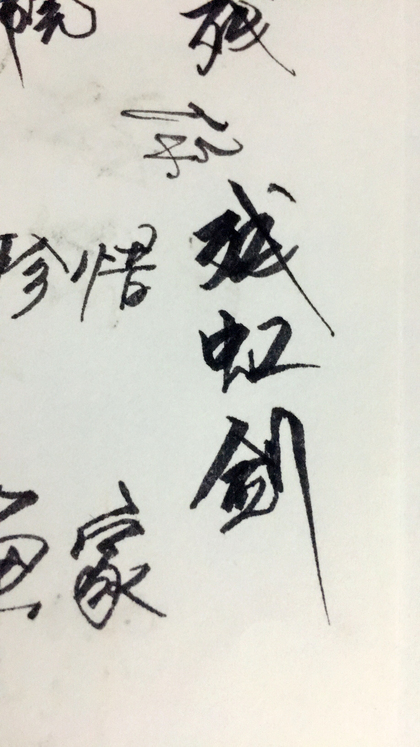 残
残虹剑
珍惜
家